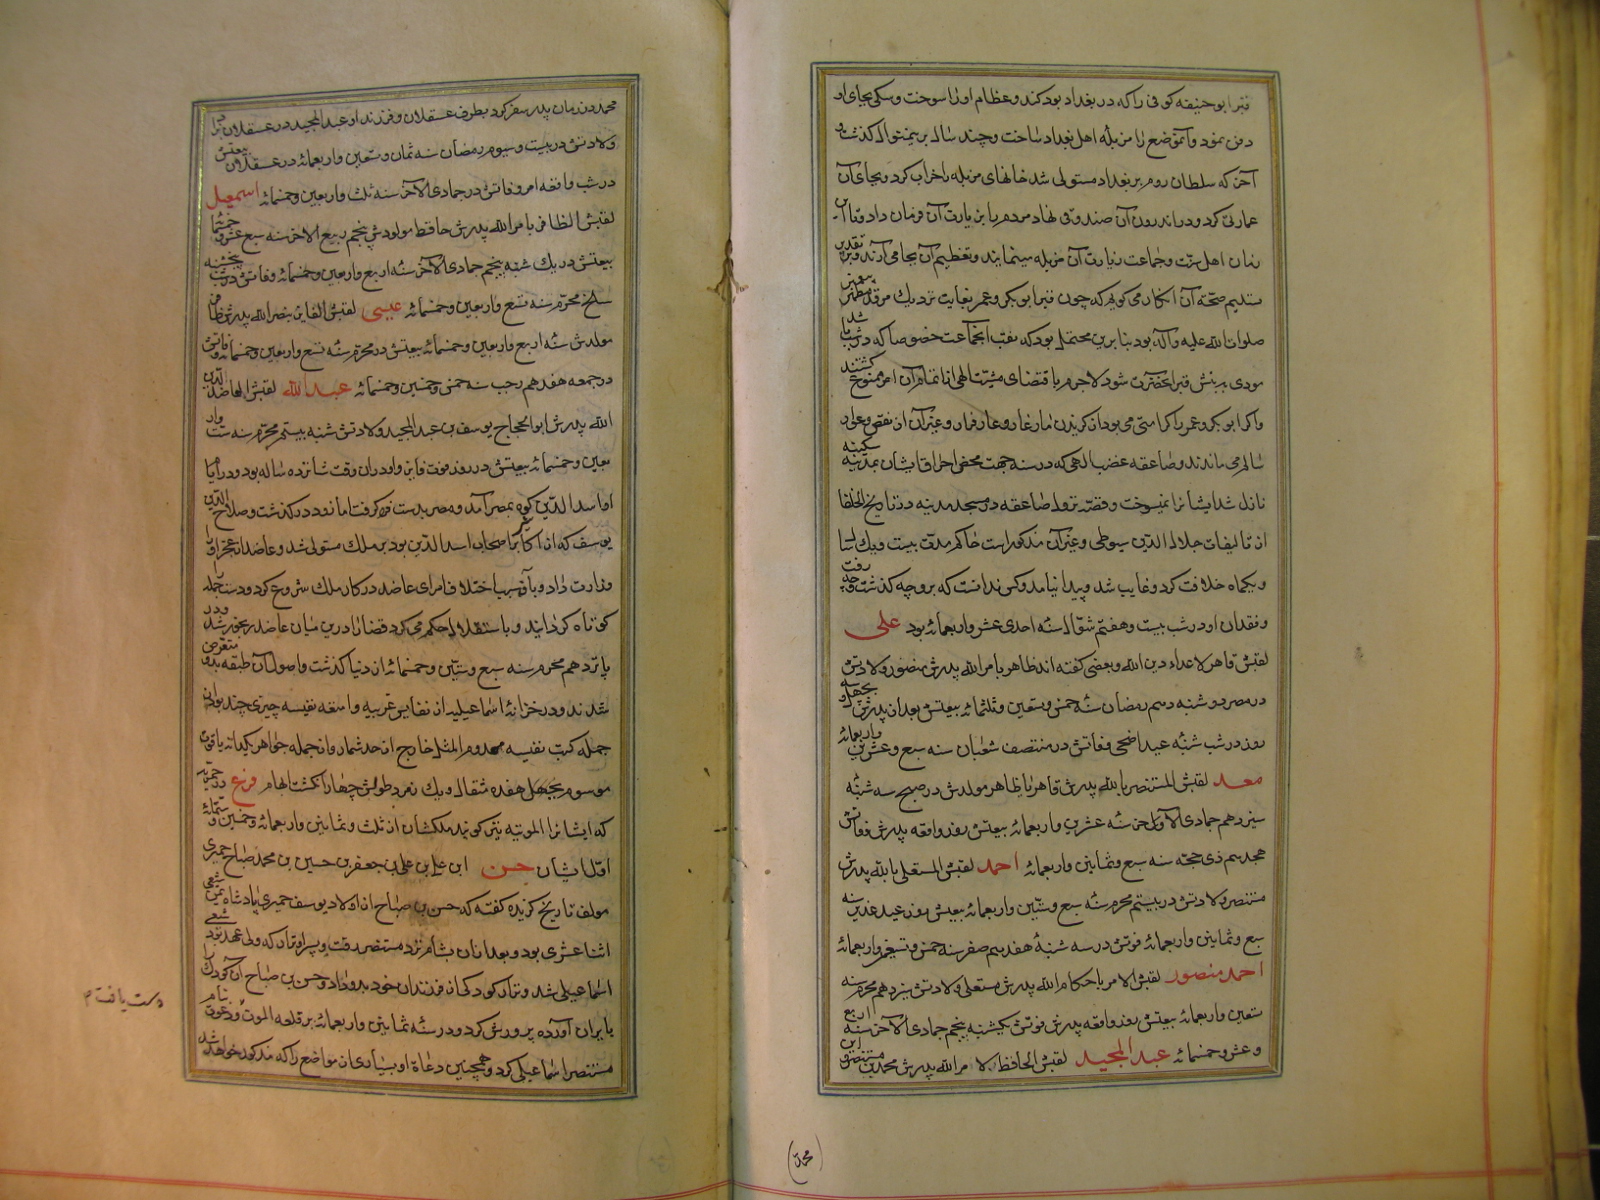 قبر ابو حنیفه کوفی را که در بغداد بود کند و عظام او را سوخت و سکی بجای او
دفن نمود و آنموضع را مزبله اهل بغداد ساخت و چند سال برینمنوال کذشت و
آخر که سلطان روم بر بغداد مستولی شد خانهای مزبله را خراب کرد و بجای آن
عمارتی کرد و در اندرون آن صندوقی نهاد مردم را بزیارت آن فرمان داد و تا این
زمان اهل سنت و جماعت زیارت آن مزبله مینمایند و تعظیم آن بجا می آرند و بر تقدیر
تسلیم صحّه آن انکار می کویم که چون قبر ابو بکر و عمر بغایت نزدیک مرقد مطهر
صلوات الله علیه و آله بود بنا برین محتمل بود که نقب انجماعت خصوصا که در شب
مودی به نبش قبر انحضرت شود لاجرم باقتضای مشیّت الهی از اتمام آن امر ممنوع کشتند
و اکر ابو بکر و عمر را کرامتی می بود از کزیدن مار غار و عار فرار و غیر آن از نقص و عوار
سالم می ماندند و صاعقه غضب الهی که در سنه جهت محض احراق ایشان بمدینه سکینه
نازل شد ایشانرا نمیسوخت و قصّه نزول صاعقه در مسجد مدینه در تاریخ الخلفا
از تالیفات جلال الدین سیوطی و غیر آن مذکور است حاکم مدّت بیست و یک سال
و یکماه خلافت کرد و غایب شد و پیدا نیامد و کس ندانست که بر و چه کذشت و چه رفت
و فقدان او در شب بیست و هفتم شوال سنه احدی عشر و اربعمائه بود علی
لقبش قاهر لاعداء دین الله و بعضی کفته اند ظاهر بامر الله پدرش منصور ولادتش
در مصر دو شنبه دهم رمضان سنه خمس و تسعین و ثلثمائه بیعتش بعد از پدرش بچهل و سه
روز در شب شنبه عید اضحی وفاتش در منتصف شعبان سنه سبع و عشرین و اربعمائه
معد لقبش المستنصر بالله پدرش قاهر یا ظاهر مولدش در صبح سه شنبه
سیزدهم جمادی الآخر سنه عشرین و اربعمائه بیعتش روز واقعه پدرش وفاتش
هجدهم ذی حجه سنه سبع و ثمانین و اربعمائه احمد لقبش المستعلی بالله پدرش
مستنصر ولادتش در بیستم محرم سنه سبع و ستین و اربعمائه بیعتش روز عید غدیر سنه
سبع و ثمانین و اربعمائه فوتش در سه شنبهٔ هفدهم صفر سنه خمس و تسعین و اربعمائه
احمد منصور لقبش الامر باحکام الله پدرش مستعلی ولادتش سیزدهم محرم سنه
تسعین و اربعمائه بیعتش روز واقعه پدرش فوتش یکشنبه پنجم جمادی الآخر سنه اربع
و عشر و خمسمائه عبد المجید لقبش الحافظ لامر الله پدرش محمد بن مستنصر این
محمد در زمان پدر سفر کرد بطرف عسقلان و فرزند او عبد المجید در عسقلان
ولادتش در بیست و سیوم رمضان سنه ثمان و تسعین و اربعمائه در عسقلان بیعتش
در شب واقعه امر وفاتش در جمادی الآخر سنه ثلث و اربعین و خمسمائه اسمعیل
لقبش الظافر بامر الله پدرش حافظ مولدش پنجم ربیع الاخر سنه سبع عشر و خمسمائه
بیعتش در یک شنبه پنجم جمادی الآخر سنه اربع و اربعین و خمسمائه وفاتش در شب پنجشنبه
سلخ محرم سنه تسع و اربعین و خمسمائه عیسی لقبش الفایز بنصر الله پدرش ظافر
مولدش سنه اربع و اربعین و خمسمائه بیعتش در محرم سنه تسع و اربعین و خمسمائه وفاتش
در جمعه هفدهم رجب سنه خمس و خمسین و خمسمائه عبد الله لقبش العاضد لدین
الله پدرش ابو الحجاج یوسف بن عبد المجید ولادتش شنبه بیستم محرم سنه ست و ار
بعین و خمسمائه بیعتش در روز فوت فایز و او در ان وقت شانزده ساله بود و در ایام
او اسد الدین کوه بمصر آمد و مصر بدست فرو کرفت اما زود در کذشت و صلاح الدین
یوسف که از اکابر اصحاب اسد الدین بود بر ملک مستولی شد و عاضد از عجز او را
وزارت داد و بآن سبب اختلاف امرای عاضد در کار ملک شروع کرد و دست جمله
کوتاه کردانید و باستقلال حکم می کرد قضا را درین میان عاضد رنجور شد و در
پانزدهم محرم سنه سبع و ستین و خمسمائه از دنیا کذشت و اصول آن طبقه بدو منقرض
شدند و در خزانهٔ اسماعیلیه از نفایس غریبه و امتعه نفیسه چیزی چند بود از
جمله کتب نفیسه معدوم المثل خارج از حد شمار و از جمله جواهر یکدانه یاقوت
موسوم بجهل هفده مثقال و یک زمرد طولش چهار انکشت ابهام فرع
که ایشانرا الموتیه نیز کویند ملکشان از ثلث و ثمانین و اربعمائه و خمسین و ستمائة
اوّل ایشان حسن ابن علی بن علی بن جعفر بن حسین بن محمد صباح حمیری
مولف تاریخ کزیده کفته که حسن بن صباح از اولاد یوسف حمیری پادشاه یمن شیعی
اثنا عشری بود و بعد از ان بشام نزد مستنصر رفت و پسر او نزار که ولی عهد بود
اسماعیلی شد و نزار کودکی از فرزندان خود بدو داد و حسن بن صباح آن کودک را
بایران آورده پرورش کرد و در سنه ثمانین و اربعمائه بر قلعه الموت و دعوت بنام
مستنصر اسماعیلی کرد و همچنین دعاة او بسیاری از مواضع را که مذکور خواهد شد
دست یافت م
(محمد)